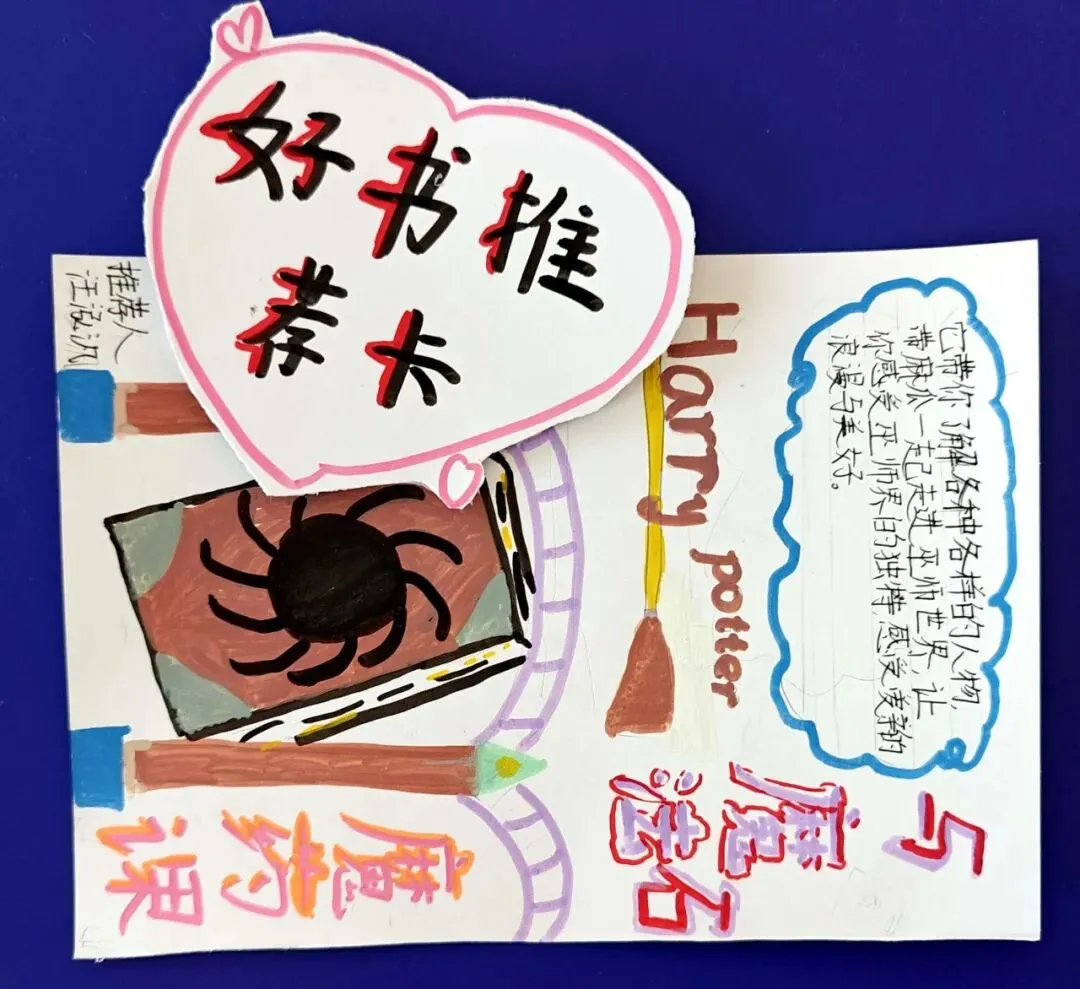 好书推
荐卡
推荐人
汪
Harry potter
与
魔
法石
它带你了解各种各样的人物,
带麻瓜一起走进巫师世界,让
你感受巫师界的独特,感受的
浪漫与美好。
魔药课